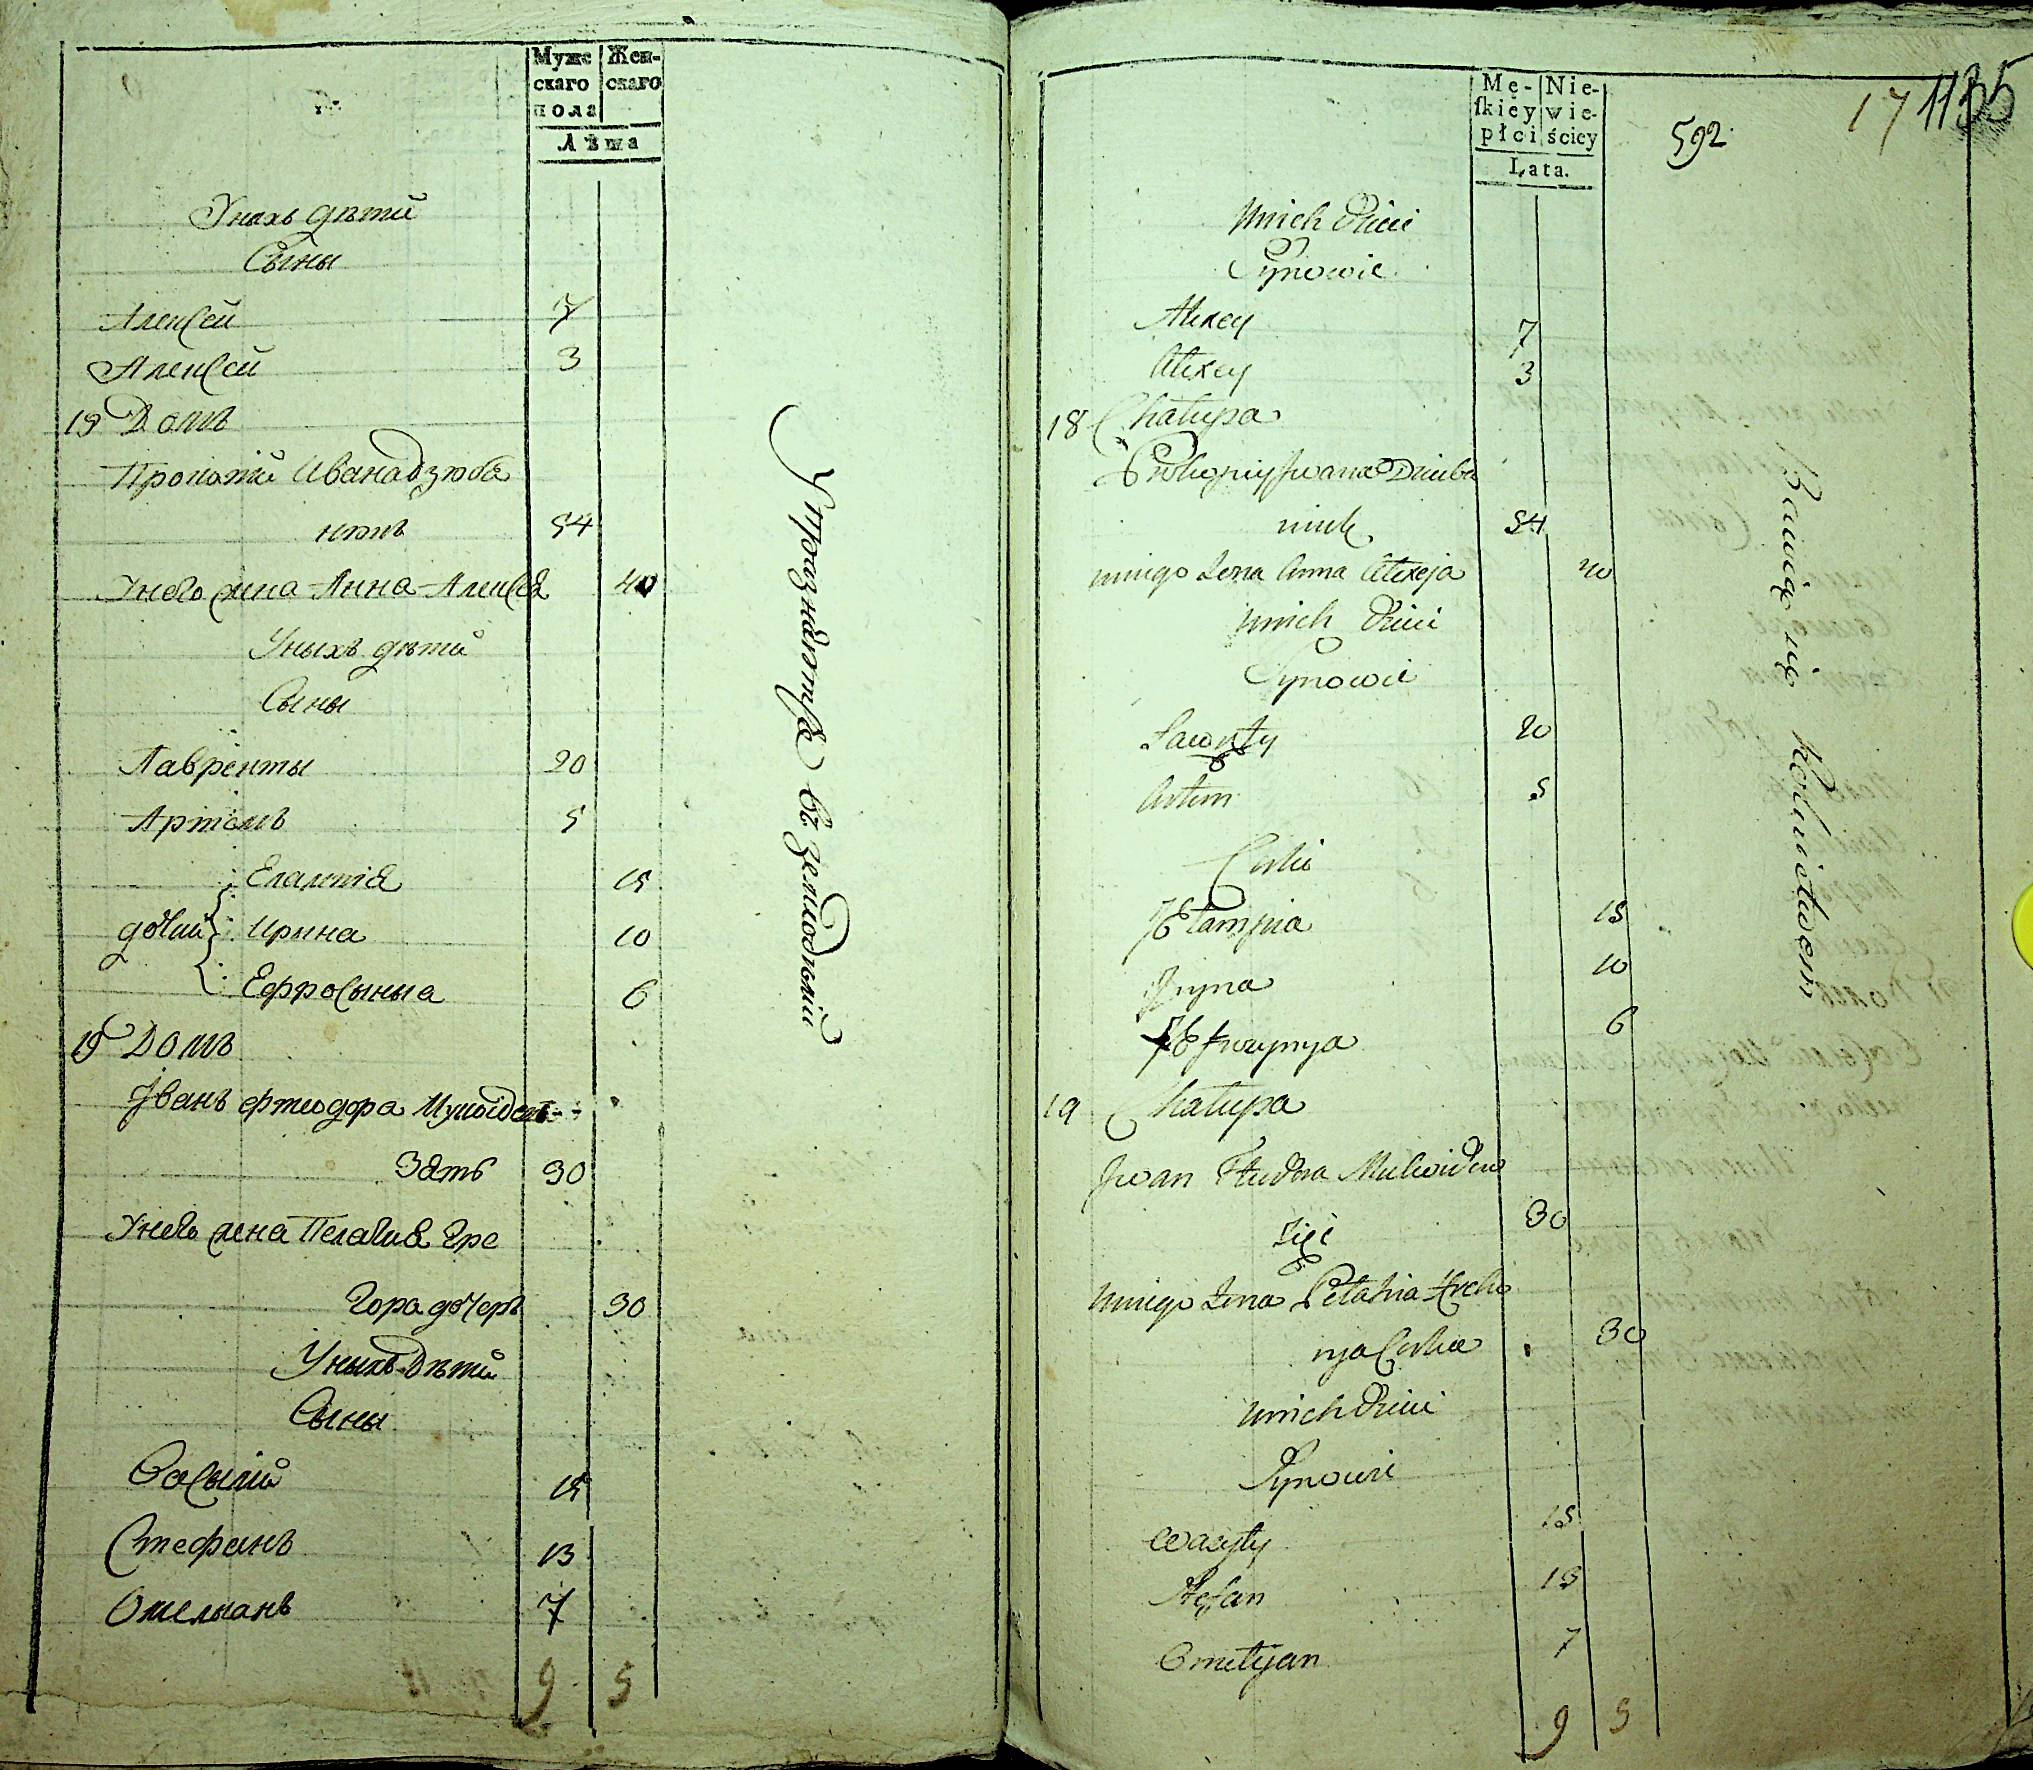 Мужс
скаго
пола
Жен-
скаго
Лѣта
Унихъ дѣти
Сыны
Алексей 7
Алексей 3
18 Домъ
Прокопій Ивана дзюбе
нокъ 54
Унего жена Анна Алексея 40
Уныхъ дѣти
Сыны
Лавренты 20
Артемъ 5
Еламтія 15
дочки Ирина 10
Ефросыныа 6
19 Домъ
Іванъ
Зять 30
Унего жена Пелагия Гре
гора дочерь 30
Уныхъ Дѣти
Сыны
Васылій 15
Стефанъ 13
Омельанъ 7
9 5
Упражнаются въ земледѣліи
Mę-
skiéy
płci
Nie-
wie-
ściey
Lata.
592
17 1135
Unich Dzieci
Synowie
Alexey 7
Alexey 3
18 Chałupa
Prokopiy Jwana Dziuba
niuk 54
Uniego Żona Anna Alexeja 40
Unich Dzieci
Synowie
Ławręty 20
Artim 5
Corki
Ełampia 15
Jryna 10
Efrozynya 6
19 Chałupa
Jwan Fteudora
Zięć 30
Uniego Żona Pelahia Hreho
rya Corka 30
Unich Dzieci
Synowie
Wasyly 15
Stefan 13
Omelyan 7
9 5
Bawią się Rolnictwem